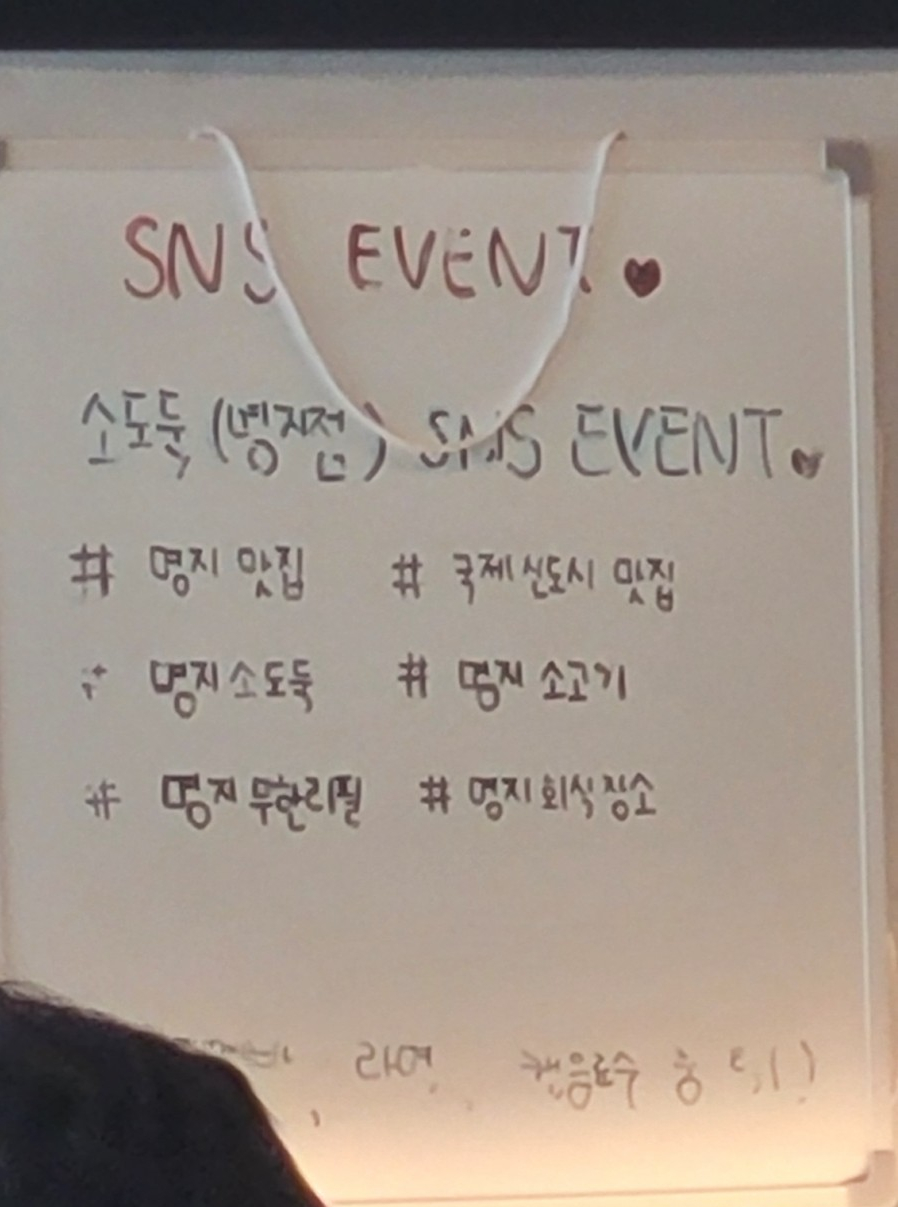 SNS EVENT♥
소도둑 (명지점) SNS EVENT♥
# 명지 맛집 # 국제신도시 맛집
# 명지소도둑 # 명지 소고기
# 명지 무한리필 # 명지회식장소
라면, 캔음료수 중 택1!